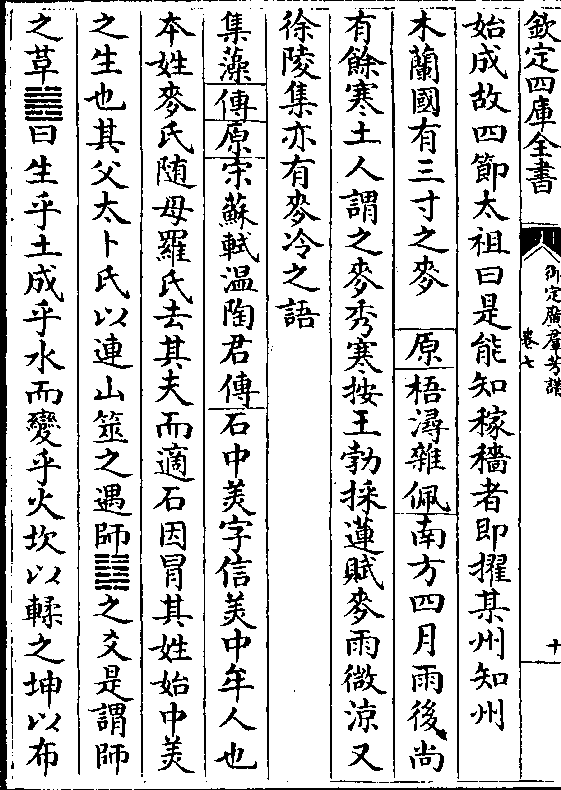 欽定四庫全書
御定廣羣芳譜
卷七
十
始成故四節太祖曰是能知稼穡者即擢某州知州
木蘭國有三寸之麥　原梧潯雜佩南方四月雨後尚
有餘寒土人謂之麥秀寒按王勃採蓮賦麥雨微涼又
徐陵集亦有麥冷之語
集藻傳原宋蘇軾温陶君傳石中美字信美中牟人也
夲姓麥氏随母羅氏去其夫而適石因冒其姓始中美
之生也其父太卜氏以連山筮之遇師䷆之爻是謂師
之草䷁曰生乎土成乎水而變乎火坎以輮之坤以布